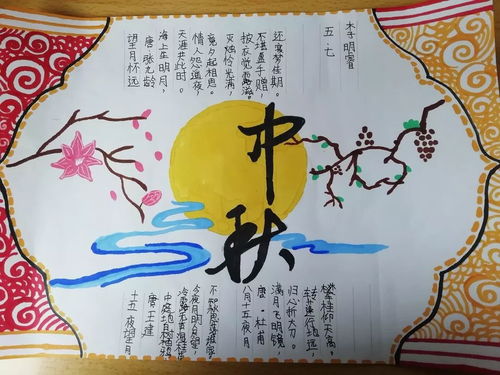 五.七
中秋
望月怀远
唐·张九龄
海上生明月,
天涯共此时。
情人怨遥夜,
竟夕起相思。
灭烛怜光满,
披衣觉露滋。
不堪盈手赠,
还寝梦佳期。
十五夜望月
唐·王建
中庭地白树栖鸦,
冷露无声湿桂花。
今夜月明人尽望,
不知秋思落谁家。
八月十五夜月
唐·杜甫
满月飞明镜,
归心折大刀。
转蓬行地远,
攀桂仰天高。